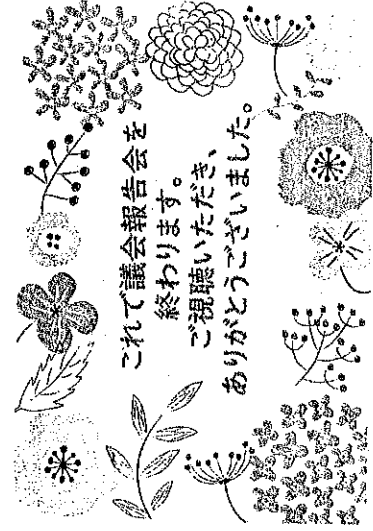 これで議会報告会を
終わります。
ご視聴いただき、
ありがとうございました。